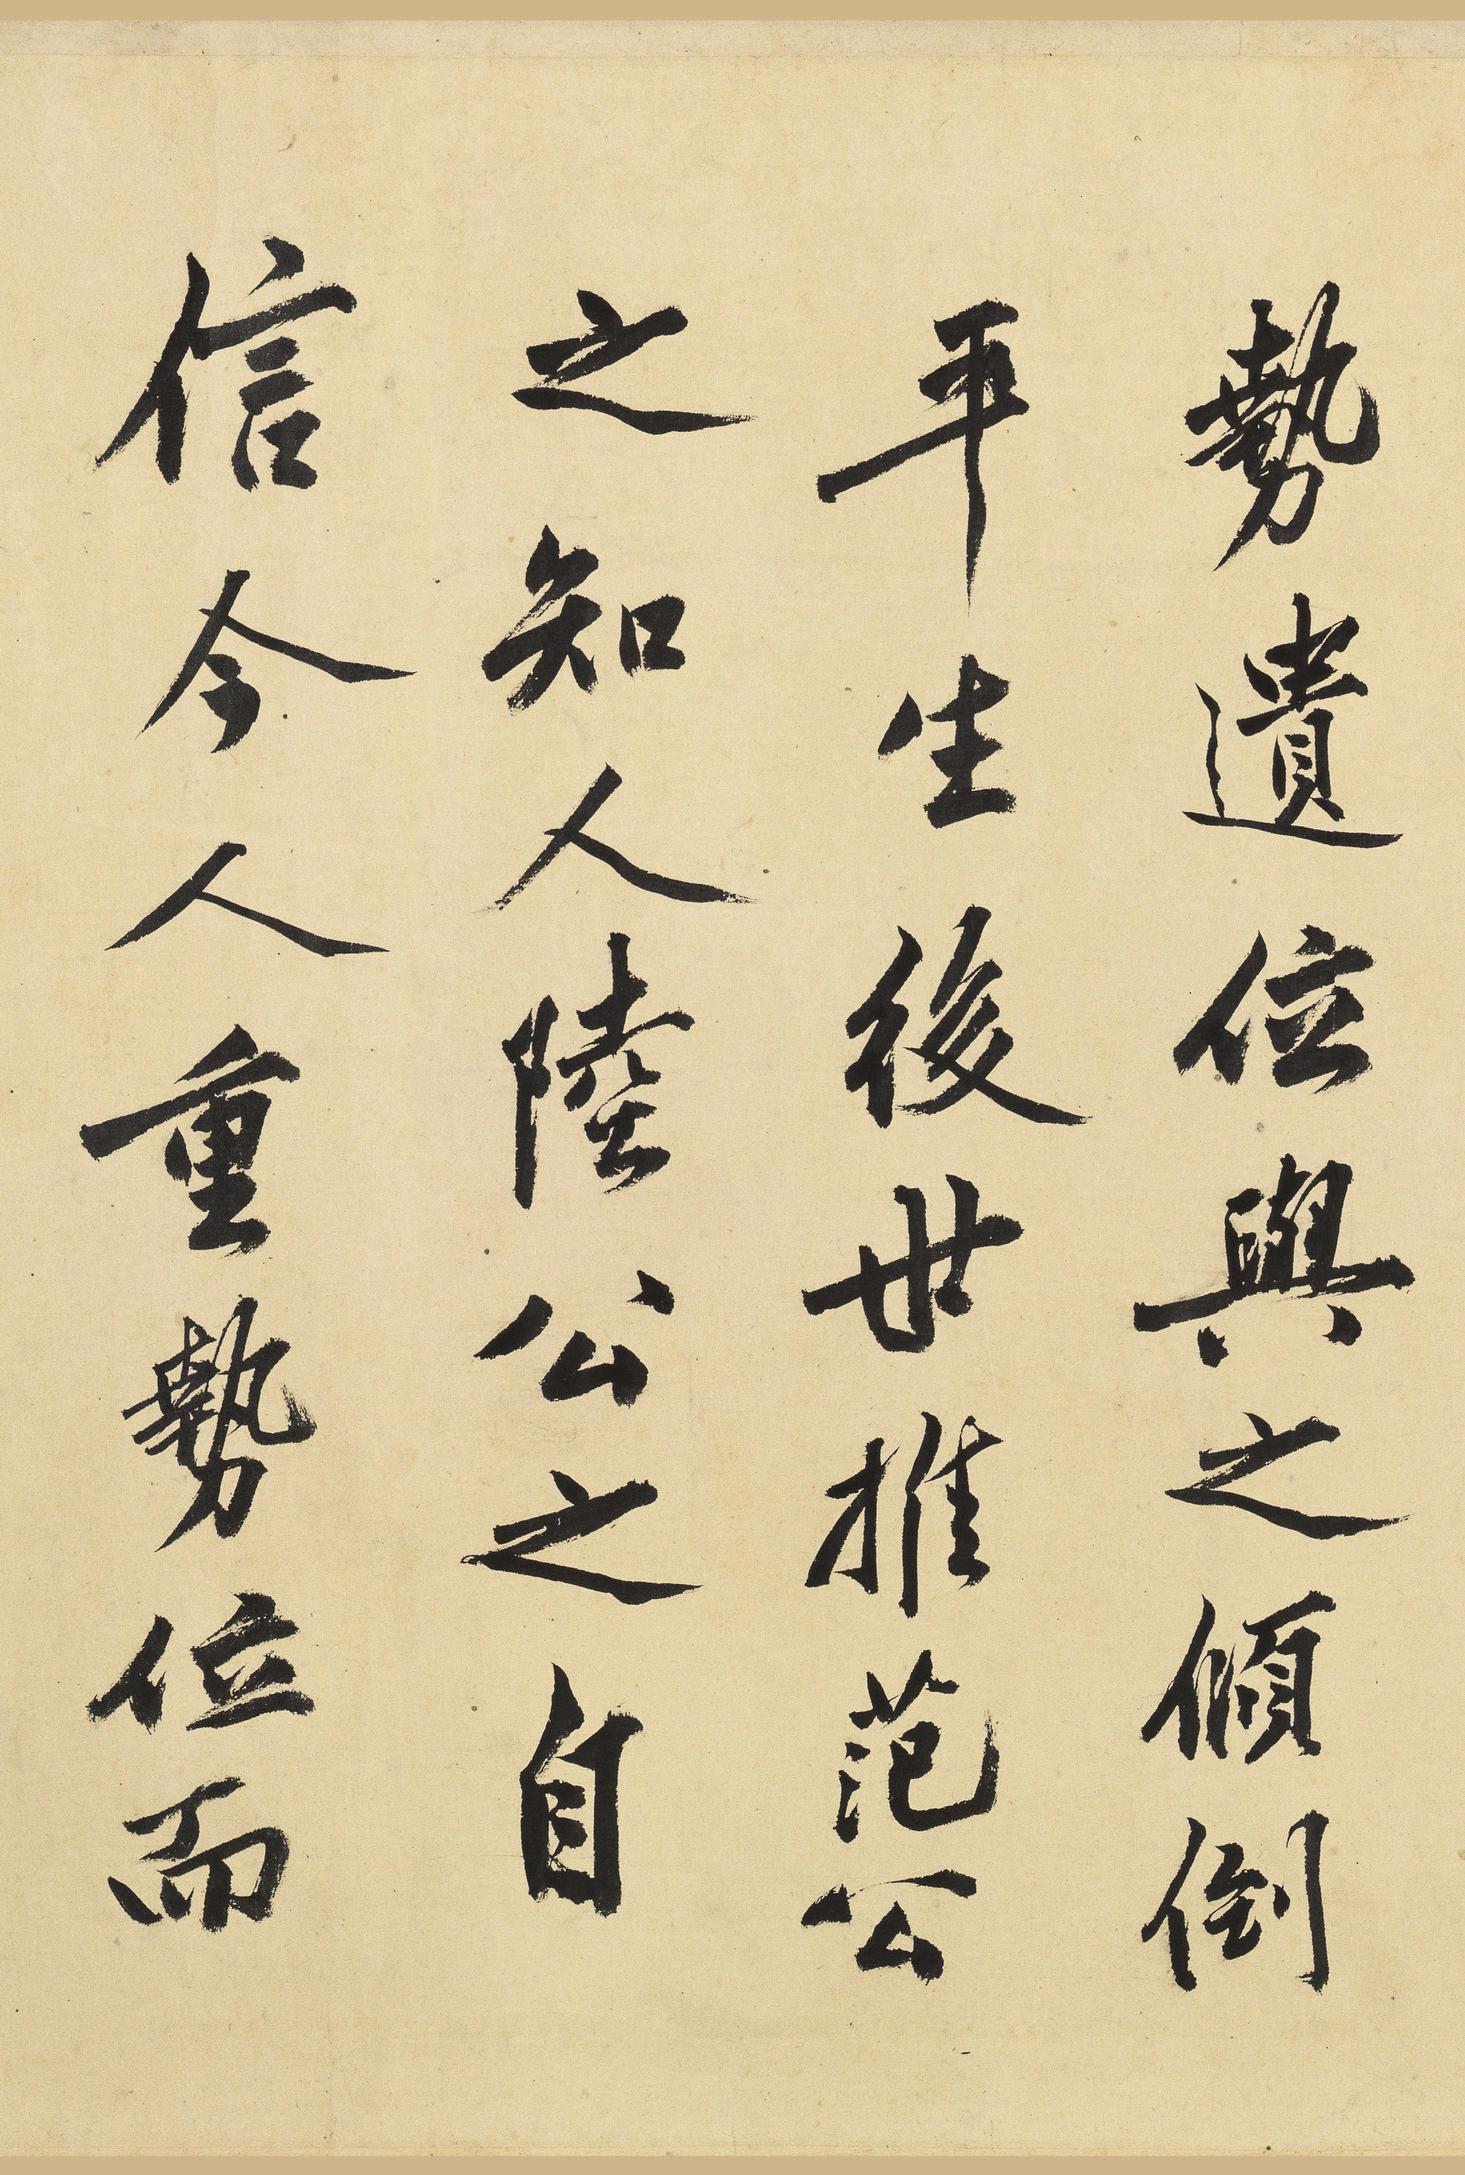 勢遺位與之傾倒
平生後世推范公
之知人陸公之自
信今人重勢位而